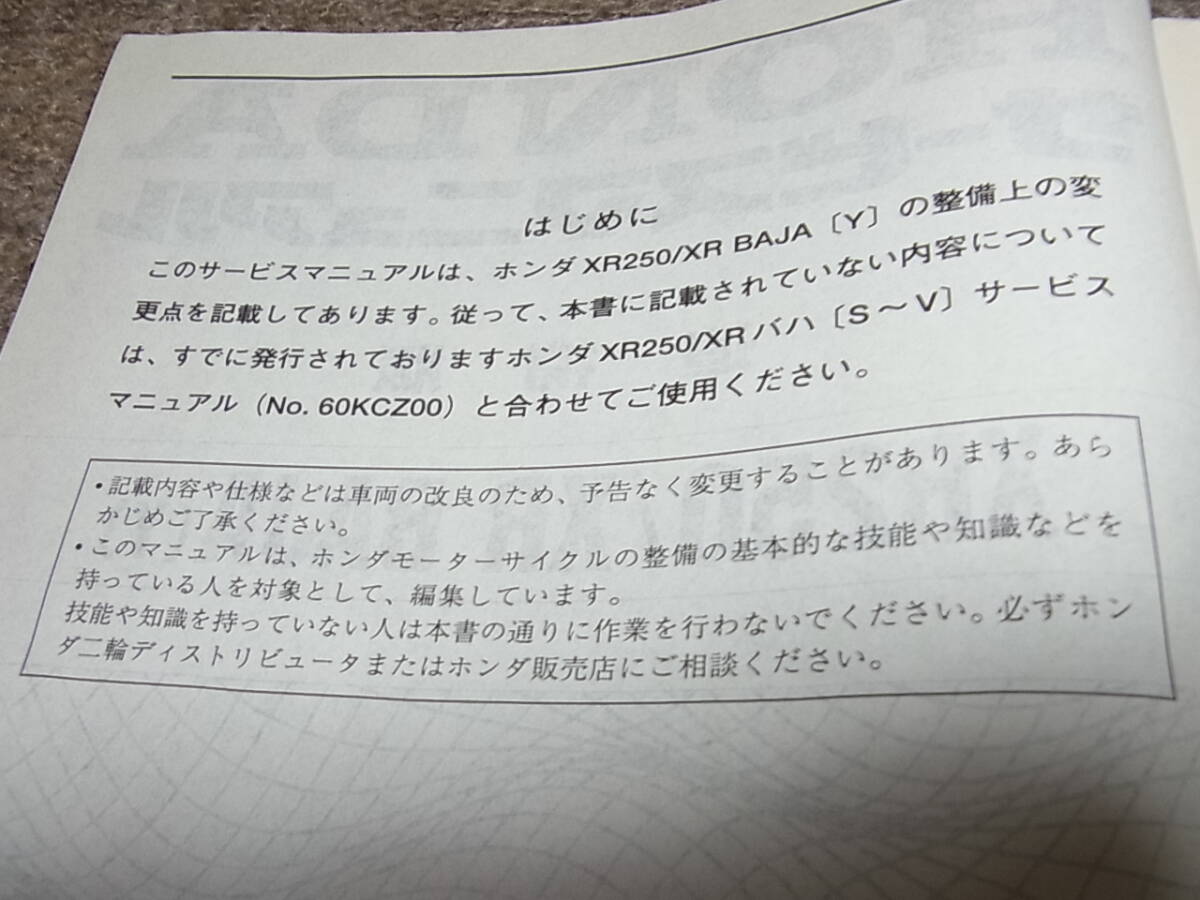 はじめに
このサービスマニュアルは、ホンダXR250/XR BAJA〔Y〕の整備上の変
更点を記載してあります。従って、本書に記載されていない内容について
は、すでに発行されておりますホンダXR250/XRバハ〔S～V〕サービス
マニュアル（No. 60KCZ00）と合わせてご使用ください。
・記載内容や仕様などは車両の改良のため、予告なく変更することがあります。あら
かじめご了承ください。
・このマニュアルは、ホンダモーターサイクルの整備の基本的な技能や知識などを
持っている人を対象として、編集しています。
技能や知識を持っていない人は本書の通りに作業を行わないでください。必ずホン
ダ二輪ディストリビュータまたはホンダ販売店にご相談ください。